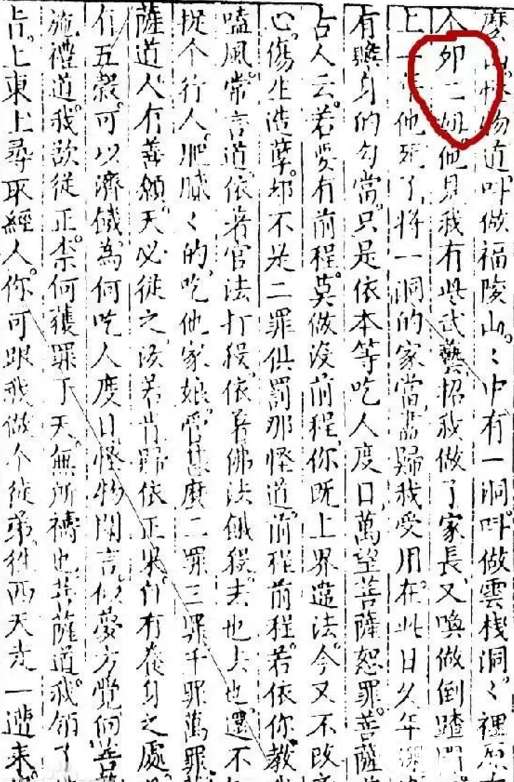 麼山怪物道叫做福陵山。〻中有一洞叫做雲棧洞〻裡
个夘二姐。他見我有些武藝招我做了家長又喚做倒蹅門
上一年他死了將一洞的家當盡歸我受用在此日久年
有贍身的勾當。只是依本等吃人度日萬望菩薩恕罪菩薩
古人云。若要有前程。莫做沒前程你既上界違法今又不改
心。傷生造孽。却不是二罪俱罰那怪道前程前程若依你教
嗑風常言道依着官法打殺依着佛法餓殺去也去也還不
捉个行人肥膩〻的吃他家娘管甚麼二罪三罪千罪萬罪
薩道人有善願天必從之汝若肯歸依正果自有養身之處
有五穀可以濟饑為何吃人度日怪物聞言似夢方覺向菩
施禮道我欲從正奈何獲罪于天無所禱也菩薩道我領了
旨。上東土尋取經人。你可跟我做个徒弟往西天走一遭來